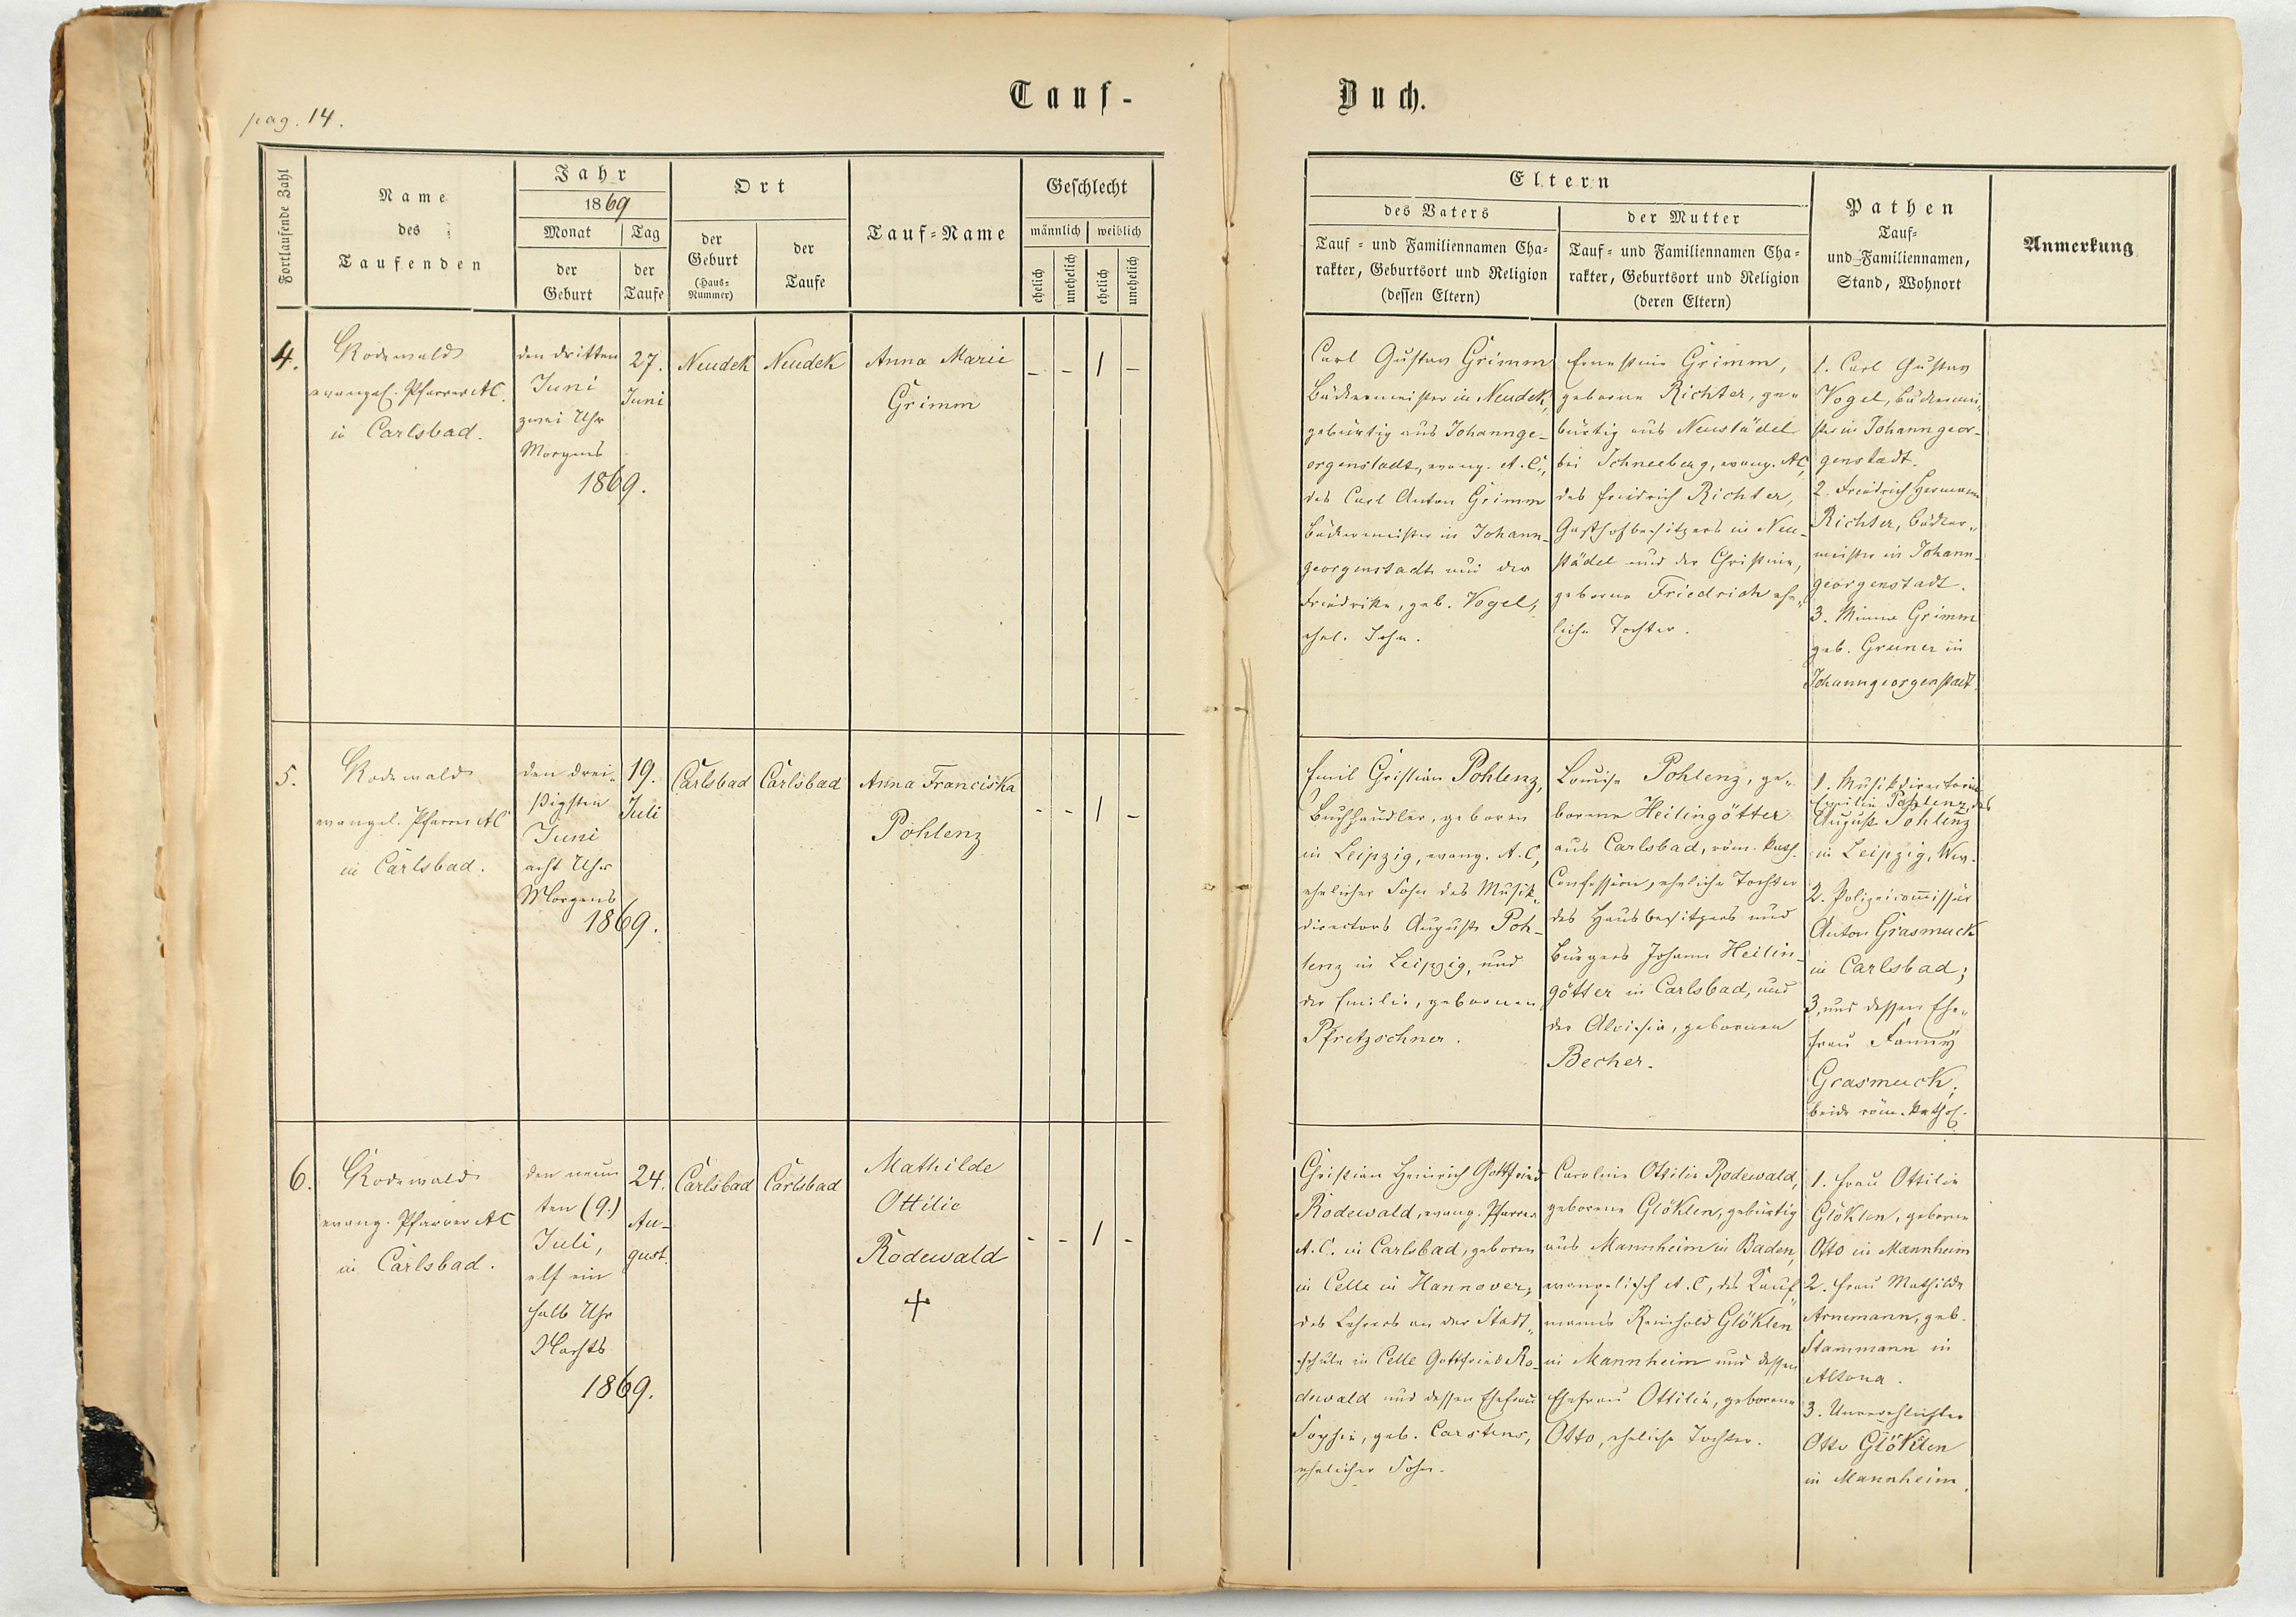 pag. 14.
Tauf-
Buch.
Fortlaufende Zahl
Name
des
Taufenden
Jahr
1869
Monat
Tag
der
Geburt
der
Taufe
Ort
der
Geburt
(Haus-
Nummer)
der
Taufe
Tauf-Name
Geschlecht
männlich
weiblich
ehelich
unehelich
ehelich
unehelich
Eltern
des Vaters
Tauf- und Familiennamen Cha-
rakter, Geburtsort und Religion
(dessen Eltern)
der Mutter
Tauf- und Familiennamen Cha-
rakter, Geburtsort und Religion
(deren Eltern)
Pathen
Tauf-
und Familiennamen,
Stand, Wohnort
Anmerkung
4.
Rodewald
evangel. Pfarrer AC.
in Carlsbad.
den dritten
Juni
zwei Uhr
Morgens
1869.
27.
Juni
Neudek
Neudek
Anna Marie
Grimm
- - 1 -
Carl Gustav Grimm
Bäckermeister in Neudek,
gebürtig aus Johannge-
orgenstadt, evang. A.C.,
des Carl Anton Grimm
Bäckermeister in Johann-
georgenstadt und der
Friedrike, geb. Vogel,
ehel. Sohn.
Ernestine Grimm,
geborne Richter, ge-
bürtig aus Neustädel
bei Schneeberg, evang. AC,
des Friedrich Richter,
Gasthofbesitzers in Neu-
städel und der Christine,
geborne Friedrich ehe-
liche Tochter.
1. Carl Gustav
Vogel, Bäckermei-
ster in Johanngeor-
genstadt.
2. Friedrich Hermann
Richter, Bäcker-
meister in Johann-
georgenstadt.
3. Minna Grimm
geb. Gruner in
Johanngeorgenstadt.
5.
Rodewald
evangel. Pfarrer AC
in Carlsbad.
den drei-
ßigsten
Juni
acht Uhr
Morgens
1869.
19.
Juli
Carlsbad
Carlsbad
Anna Franciska
Pohlenz
- - 1 -
Emil Christian Pohlenz,
Buchhändler, geboren
in Leipzig, evang. A.C,
ehelicher Sohn des Musik-
directors August Poh-
lenz in Leipzig, und
der Emilie, gebornen
Pfretzschner.
Louise Pohlenz, ge-
borene Heilingötter
aus Carlsbad, röm. kath.
Confession, eheliche Tochter
des Hausbesitzers und
Bürgers Johann Heilin-
götter in Carlsbad, und
der Aloisia, gebornen
Becher.
1. Musikdirectorin
Emilie Pohlenz, des
August Pohlenz
in Leipzig, Wwe.
2. Polizeicommissär
Anton Grasmuck
in Carlsbad;
3, und dessen Ehe-
frau Fanny
Grasmuck;
beide röm. kathol.
6.
Rodewald
evang. Pfarrer AC
in Carlsbad.
den neun
ten (9.)
Juli,
elf ein
halb Uhr
Nachts
1869.
24.
Au-
gust.
Carlsbad
Carlsbad
Mathilde
Ottilie
Rodewald
+
- - 1 -
Christian Heinrich Gottfried
Rodewald, evang. Pfarrer
A.C. in Carlsbad, geboren
in Celle in Hannover;
des Lehrers an der Stadt-
schule in Celle Gottfried Ro-
dewald und dessen Ehefrau
Sophie, geb. Carstens,
ehelicher Sohn.
Caroline Ottilie Rodewald,
geborene Glöklen, gebürtig
aus Mannheim in Baden,
evangelisch A.C, des Kauf-
manns Reinhold Glöklen
in Mannheim und dessen
Ehefrau Ottilie, geborene
Otto, eheliche Tochter.
1. Frau Ottilie
Glöklen, geborne
Otto in Mannheim
2. Frau Mathilde
Arnemann, geb.
Stammann in
Altona.
3. Unverehlichter
Otto Glöklen
in Mannheim.